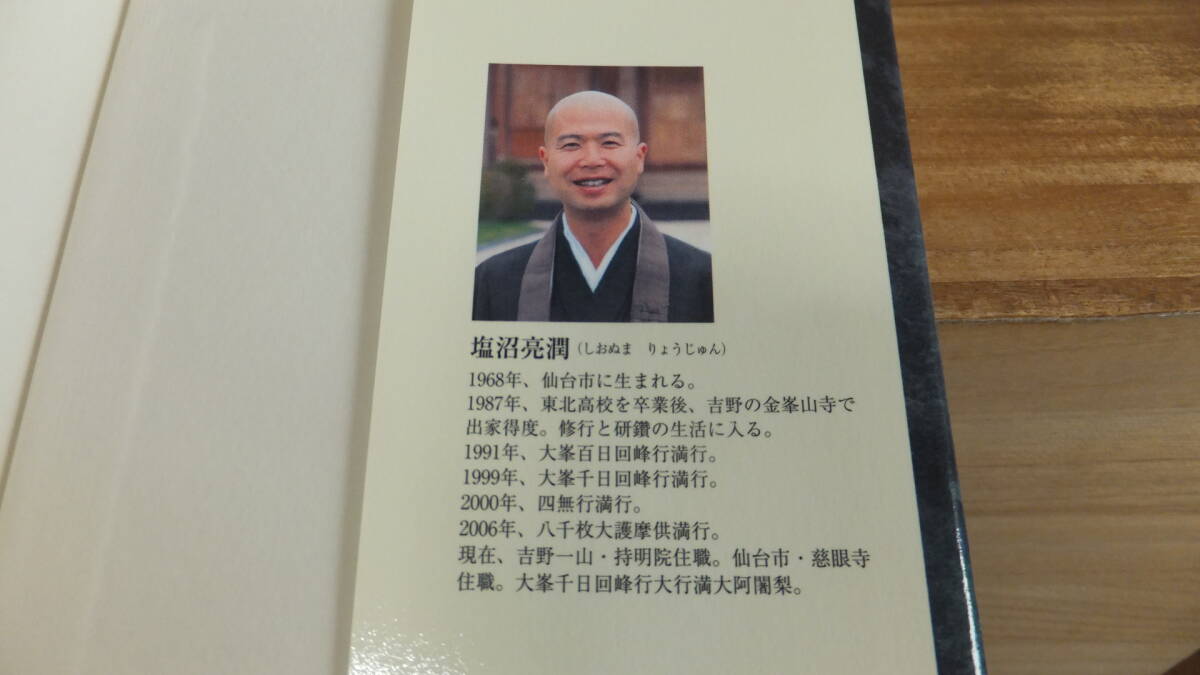 塩沼亮潤(しおぬま りょうじゅん)
1968年、仙台市に生まれる。
1987年、東北高校を卒業後、吉野の金峯山寺で
出家得度。修行と研鑽の生活に入る。
1991年、大峯百日回峰行満行。
1999年、大峯千日回峰行満行。
2000年、四無行満行。
2006年、八千枚大護摩供満行。
現在、吉野一山・持明院住職。仙台市・慈眼寺
住職。大峯千日回峰行大行満大阿闍梨。